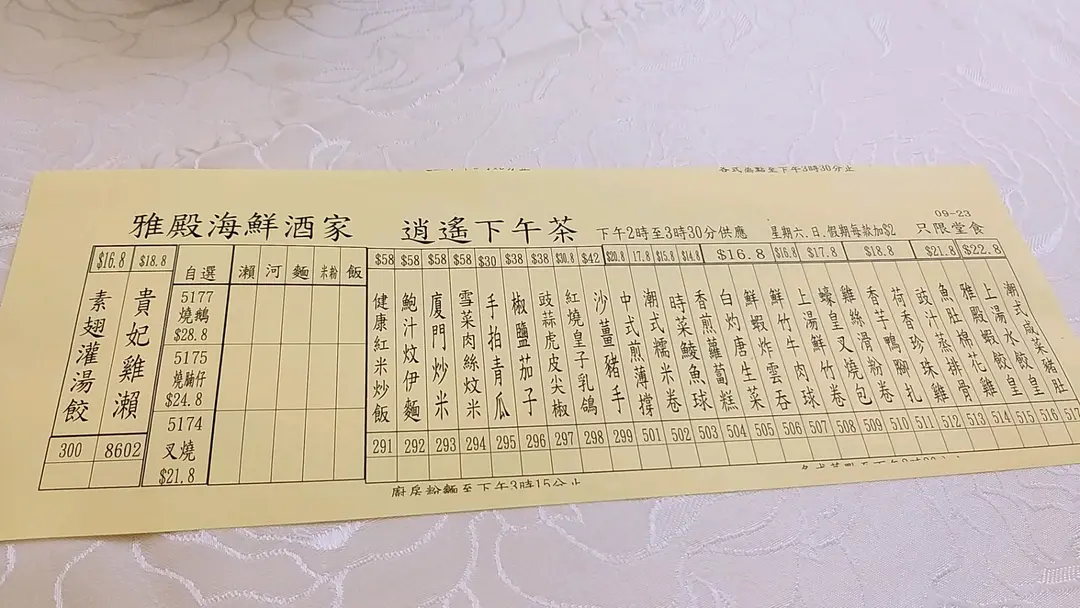 下午3時30分止
09-23
雅殿海鮮酒家 逍遙下午茶 下午2時至3時30分供應 星期六.日.假期每款加$2 只限堂食
$16.8 $18.8 自選 瀨 河 麵 米粉 飯 $58 $58 $58 $58 $30 $38 $38 $30.8 $42 $20.8 17.8 $15.8 $14.8 $16.8 $16.8 $17.8 $18.8 $21.8 $22.8
素翅灌湯餃
貴妃雞瀨
5177
燒鵝
$28.8
5175
燒腩仔
$24.8
5174
叉燒
$21.8
健康紅米炒飯
鮑汁炆伊麵
廈門炒米
雪菜肉絲炆米
手拍青瓜
椒鹽茄子
豉蒜虎皮尖椒
紅燒皇子乳鴿
沙薑豬手
中式煎薄撐
潮式糯米卷
時菜鯪魚球
香煎蘿蔔糕
白灼唐生菜
鮮蝦炸雲吞
鮮竹牛肉球
上湯鮮竹卷
蠔皇叉燒包
雞絲滑粉卷
香芋鴨腳扎
荷香珍珠雞
豉汁蒸排骨
魚肚棉花雞
雅殿蝦餃皇
上湯水餃皇
潮式咸菜豬肚
300 8602 291 292 293 294 295 296 297 298 299 501 502 503 504 505 506 507 508 509 510 511 512 513 514 515 516 517
廚房粉麵至下午3時15分止